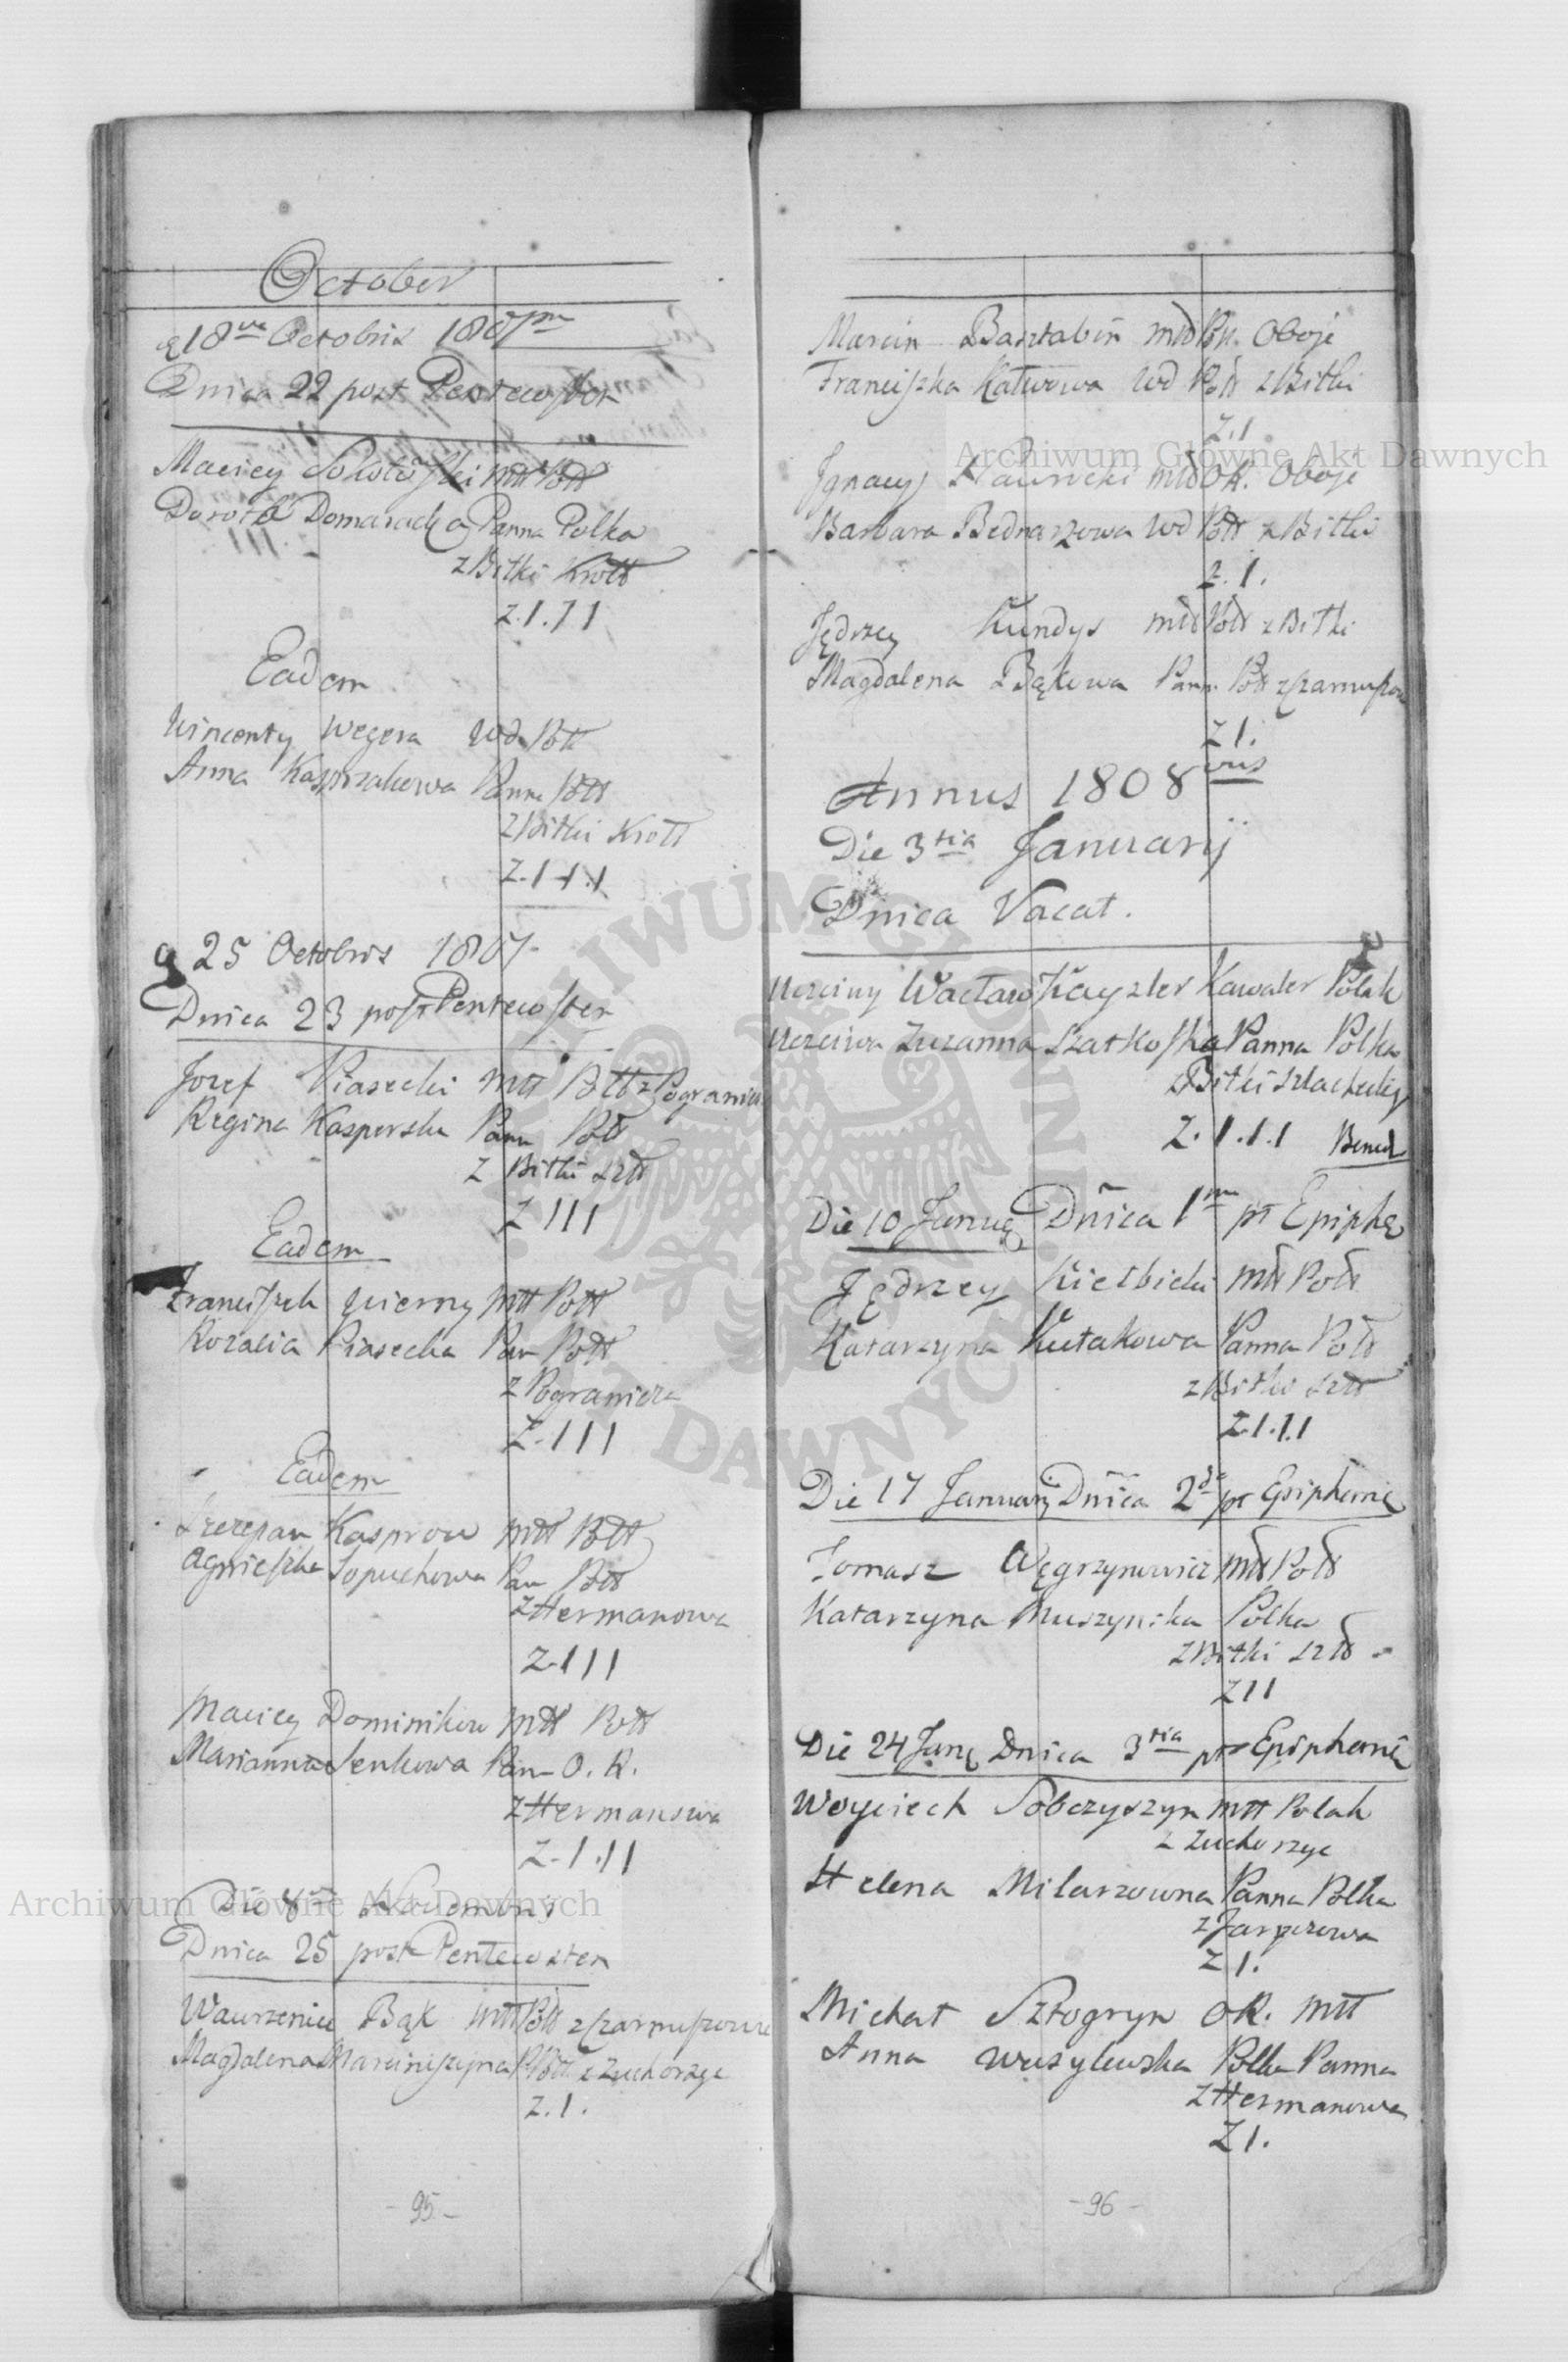 October
18va Octobris 1807mo
Dnica 22 post Pentecosten
Maciey Sokołoski Mtt Pott
Dorota Domaradzq Panna Polka
z Bitki Krott
Z.1.11
Eadem
Wincenty Wegera Wd. Pott
Anna Kasprzakowa Panna Pott
z Bitki Krott
Z.1.1.1
25 Octobris 1807
Dnica 23 post Pentecosten
Jozef Piasecki Mtt Pott z Pogranicza
Regina Kasperska Pann Pott
Z Bitki Szltt
Z 111
Eadem
Franciszek Mierny Mtt Pott
Rozalia Piasecka Pan Pott
z Pogranicza
Z.111
Eadem
Szczepan Kasprow Mtt Pott
Agnieszka Łopuchowa Pan Pott
z Hermanowa
Z.111
Maciey Dominikow Mtt Pott
Marianna Senkowa Pan O.R.
z Hermanowa
Z.1.11
Die 8 Novembris
Dnica 25 post Pentecosten
Wawrzeniec Bąk Mtt Pott z Czarnuszowic
Magdalena Marciniszyna P Pott z Zuchorzyc
Z.1.
- 95 -
Marcin Basztabin młd Pu. Oboje
Franciszka Katwowa Wd Pott z Bitki
Z.1
Ignacy Ławrocki młd O.R. Oboje
Barbara Bednarzowa Wd Pott z Bitki
Z.1.
Jędrzey Kundys młd Pott z Bitki
Magdalena Bąkowa Pann. Pott z Czarnuszow
Z 1.
Annus 1808vus
Die 3tia Januarij
Dnica Vacat.
Uczciwy Wacław Kayzler Kawaler Polak
Uczciwa Zuzanna Szatkoska Panna Polka
z Bitki Szlacheckiey
Z.1.1.1 Bened
Die 10 Januar Dnica 1ma pt Epipha
Jędrzey Kiełbicki Młd Pott
Katarzyna Kutakowa Panna Pott
z Bitki Sztt
Z.1.1.1
Die 17 January Dnica 2da pt Epiphanię
Tomasz Węgrzynowicz Młd Pott
Katarzyna Muszynska Polka
z Bitki Sztt
Z11
Die 24 Janę Dnica 3tia pt Epiphanię
Woyciech Sobczyszyn Mtt Polak
z Zuchorzyc
Helena Milarzowna Panna Polka
z Jaryczowa
Z 1.
Michał Sztogryn O.R. Mtt
Anna Wuszylewska Polka Panna
z Hermanowa
Z 1.
- 96 -
Archiwum Główne Akt Dawnych
Archiwum Główne Akt Dawnych
ARCHIWUM GŁÓWNE AKT DAWNYCH